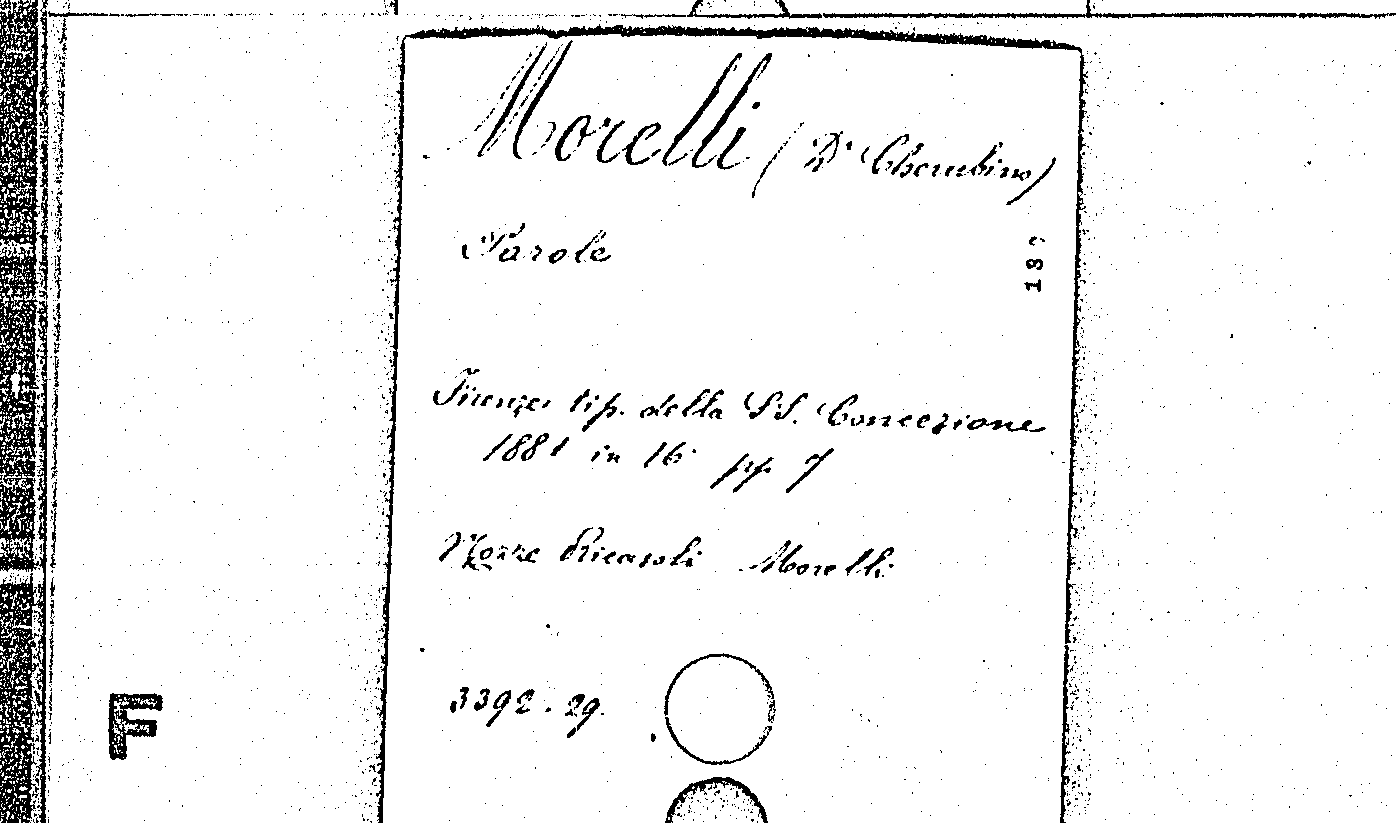 Morelli (D. Cherubino)
Parole
Firenze tip. della SS. Concezione
1881 in 16 pp. 7
Nozze Ricasoli Morelli
3392.29.
F